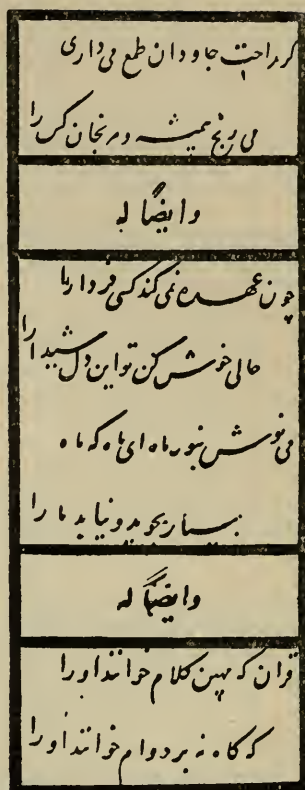 گر راحت جاودان طمع می داری
می رنج همیشه و مرنجان کس را
وایضاً له
چون عهده نمی کند کسی فردا را
حالی خوش کن تو این دل شیدا را
می نوش بنور ماه ای ماه که ماه
بسیار بجوید و نیابد ما را
وایضاً له
قران که مهین کلام خوانند او را
که گاه نه بر دوام خوانند او را